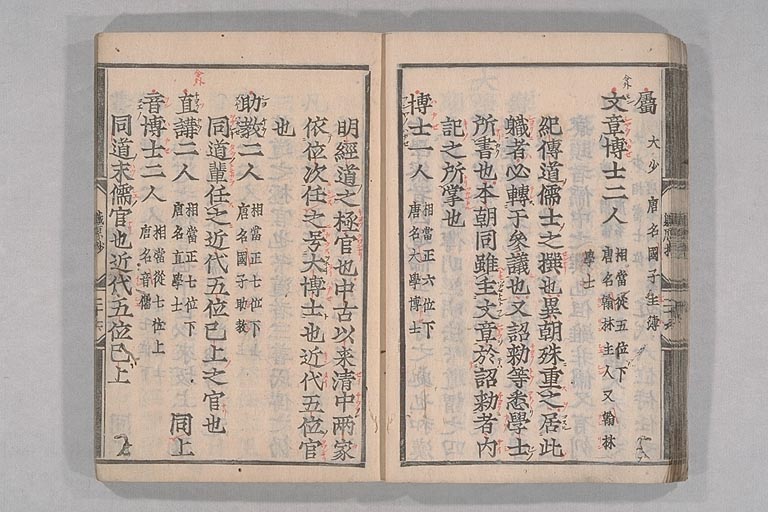 屬 大少 唐名國子主簿
文章博士二人 相當從五位下
唐名翰林主人又翰林
學士
紀傳道儒士之撰也異朝殊重之居此
職者必轉于參議也又詔勅等悉學士
所書也本朝同雖主文章於詔勅者内
記之所掌也
博士一人 相當正六位下
唐名大學博士
明經道之極官也中古以来清中兩家
依位次任之号大博士也近代五位官
也
助教二人 相當正七位下
唐名國子助教
同道輩任之近代五位已上之官也
直講二人 相當正七位下 同上
唐名直學士
音博士二人 相當從七位上
唐名音儒
同道末儒官也近代五位已上